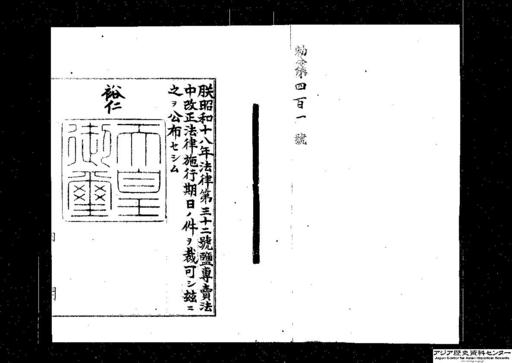 勅令第四百一號
朕昭和十八年法律第三十二號鹽專賣法
中改正法律施行期日ノ件ヲ裁可シ玆ニ
之ヲ公布セシム
裕仁
天皇
御璽
アジア歴史資料センター
Japan Center for Asian Historical Records